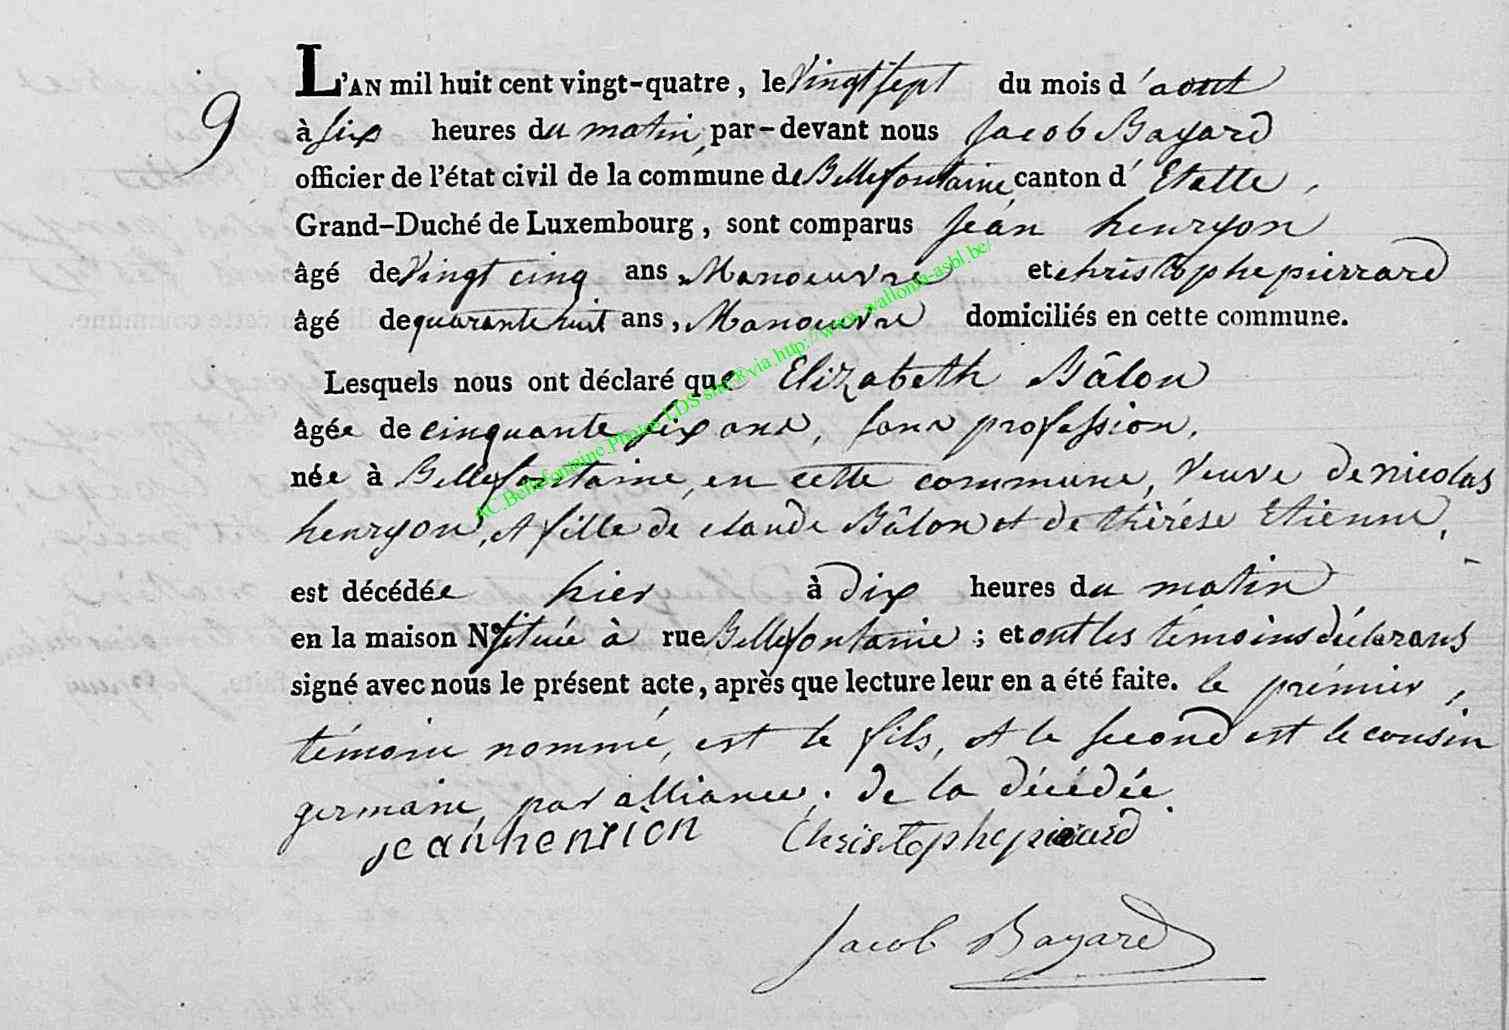 9
L'AN mil huit cent vingt-quatre, le vingt sept du mois d'aout
à six heures du matin, par-devant nous Jacob Bayard
officier de l'état civil de la commune de Bellefontaine canton d'Etalle,
Grand-Duché de Luxembourg, sont comparus Jean henryon
âgé de vingt cinq ans, Manoeuvre et christophe pierrard
âgé de quarante huit ans, Manoeuvre domiciliés en cette commune.
Lesquels nous ont déclaré que Elizabeth Bâlon
âgée de cinquante six ans, sans profession,
née à Bellefontaine, en cette commune, veuve de nicolas
henryon, et fille de claude Bâlon et de thérése Etienne,
est décédée hier à dix heures du matin
en la maison N° située à rue Bellefontaine ; et ont les témoins déclarans
signé avec nous le présent acte, après que lecture leur en a été faite. le prémier,
témoin nommé, est le fils, et le second est le cousin
germain, par alliance, de la décédée.
jean henrion Christophe pierard
Jacob Bayard